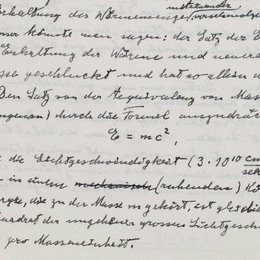 Erhaltung des Wärmemenge/verschmolze
miteinander
könnte man sagen: der Satz der E
Erhaltung der Wärme und neuer
geschluckt und hat so allein
Den Satz von der Aequivalenz von Mass
durch die Formel ausgedrü
E = mc²,
die Lichtgeschwindigkeit (3 · 10¹⁰ cm/sek
in einem mechanisch (ruhenden) Kö
rgie, die zu der Masse m gehört, ist gleich di
Quadrat der ungeheuer grossen Lichtgesch
pro Masseneinheit.